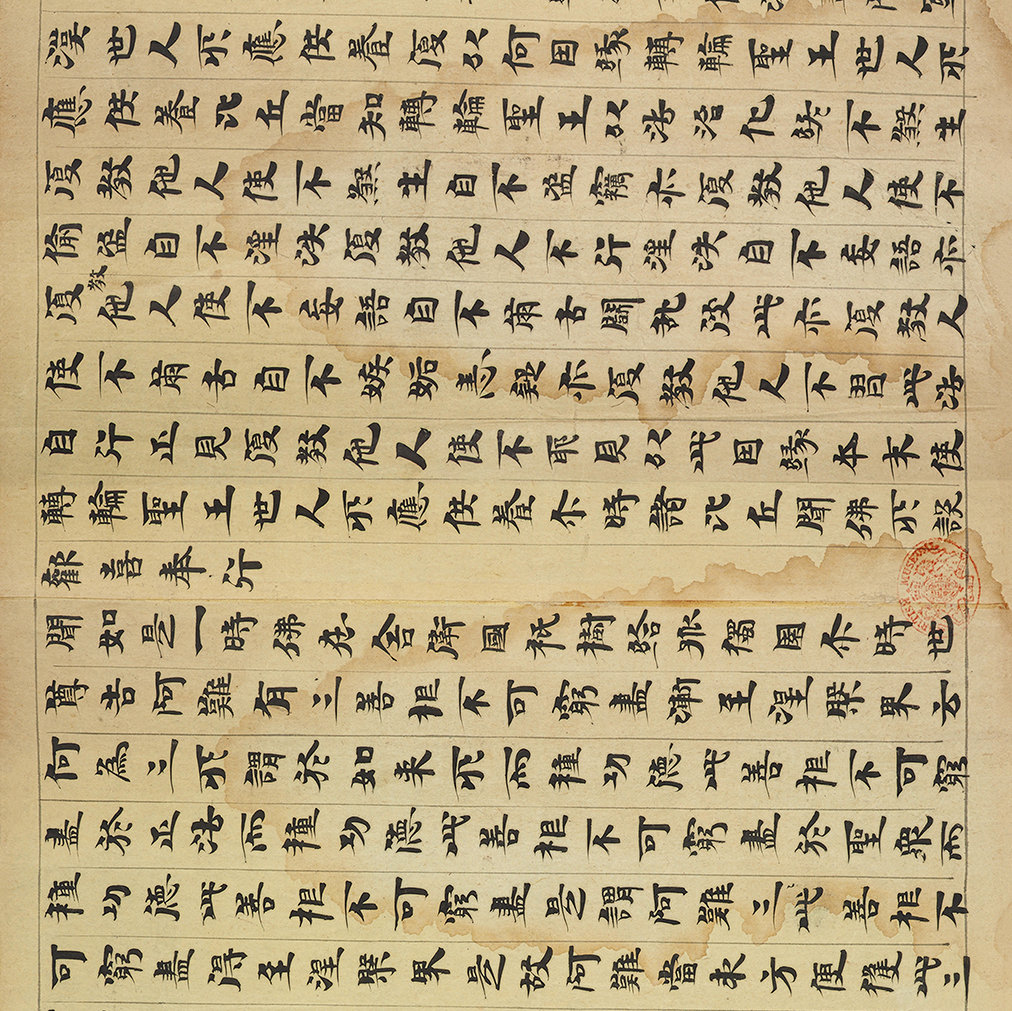 漏世人所應供養復以何因緣轉輪聖王世人所
應供養比丘當知轉輪聖王以法治化終不煞生
復教他人使不煞生自不盜竊亦復教他人使不
偷盜自不淫泆復教他人不行淫泆自不妄語亦
復教他人使不妄語自不兩舌鬪乱彼此亦復教人
使不兩舌自不嫉妬恚癡亦復教他人不習此法
自行正見復教他人使不耶見以此因緣本末使
轉輪聖王世人所應供養尒時諸比丘聞佛所說
歡喜奉行
聞如是一時佛在舍衛國祇樹給孤獨園尒時世
尊告阿難有三善根不可窮盡漸至涅槃界云
何為三所謂於如來所而種功德此善根不可窮
盡於正法而種功德此善根不可窮盡於聖眾而
種功德此善根不可窮盡是謂阿難三此善根不
可窮盡得至涅槃界是故阿難當求方便獲此三
MUSEUM